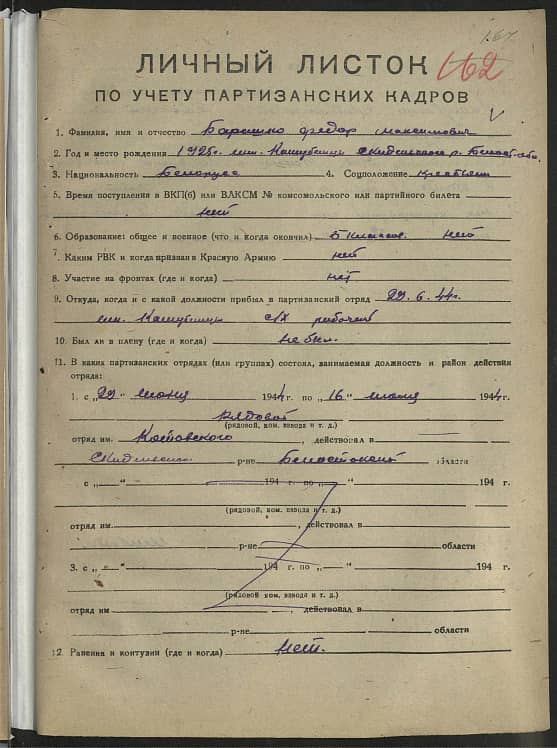 167
162
ЛИЧНЫЙ ЛИСТОК
ПО УЧЕТУ ПАРТИЗАНСКИХ КАДРОВ
1. Фамилия, имя и отчество Барашко Федор Максимович
2. Год и место рождения 1925г. Скидельского р. Белост. обл.
3. Национальность Белорусс 4. Соцположение крестьян
5. Время поступления в ВКП(б) или ВЛКСМ № комсомольского или партийного билета
нет
6. Образование: общее и военное (что и когда окончил) 5 классов. нет
7. Каким РВК и когда призван в Красную Армию нет
8. Участие на фронтах (где и когда) нет
9. Откуда, когда и с какой должности прибыл в партизанский отряд 29.6.44г.
с/х рабочий
10. Был ли в плену (где и когда) не был.
11. В каких партизанских отрядах (или группах) состоял, занимаемая должность и район действия
отряда:
1. с „29" 1944 г. по „16" 1944 г.
Рядовой
(рядовой, ком. взвода и т. д.)
отряд им. Котовского, действовал в
Скидельском р-не Белостокской области
с „ " 194 г. по „ " 194 г.
(рядовой, ком. взвода и т. д.)
отряд им. , действовал в
р-не области
3. с „ " 194 г. по „ " 194 г.
(рядовой ком. взвода и т. д.)
отряд им , действовал в
р-не области
12. Ранения и контузии (где и когда) Нет.